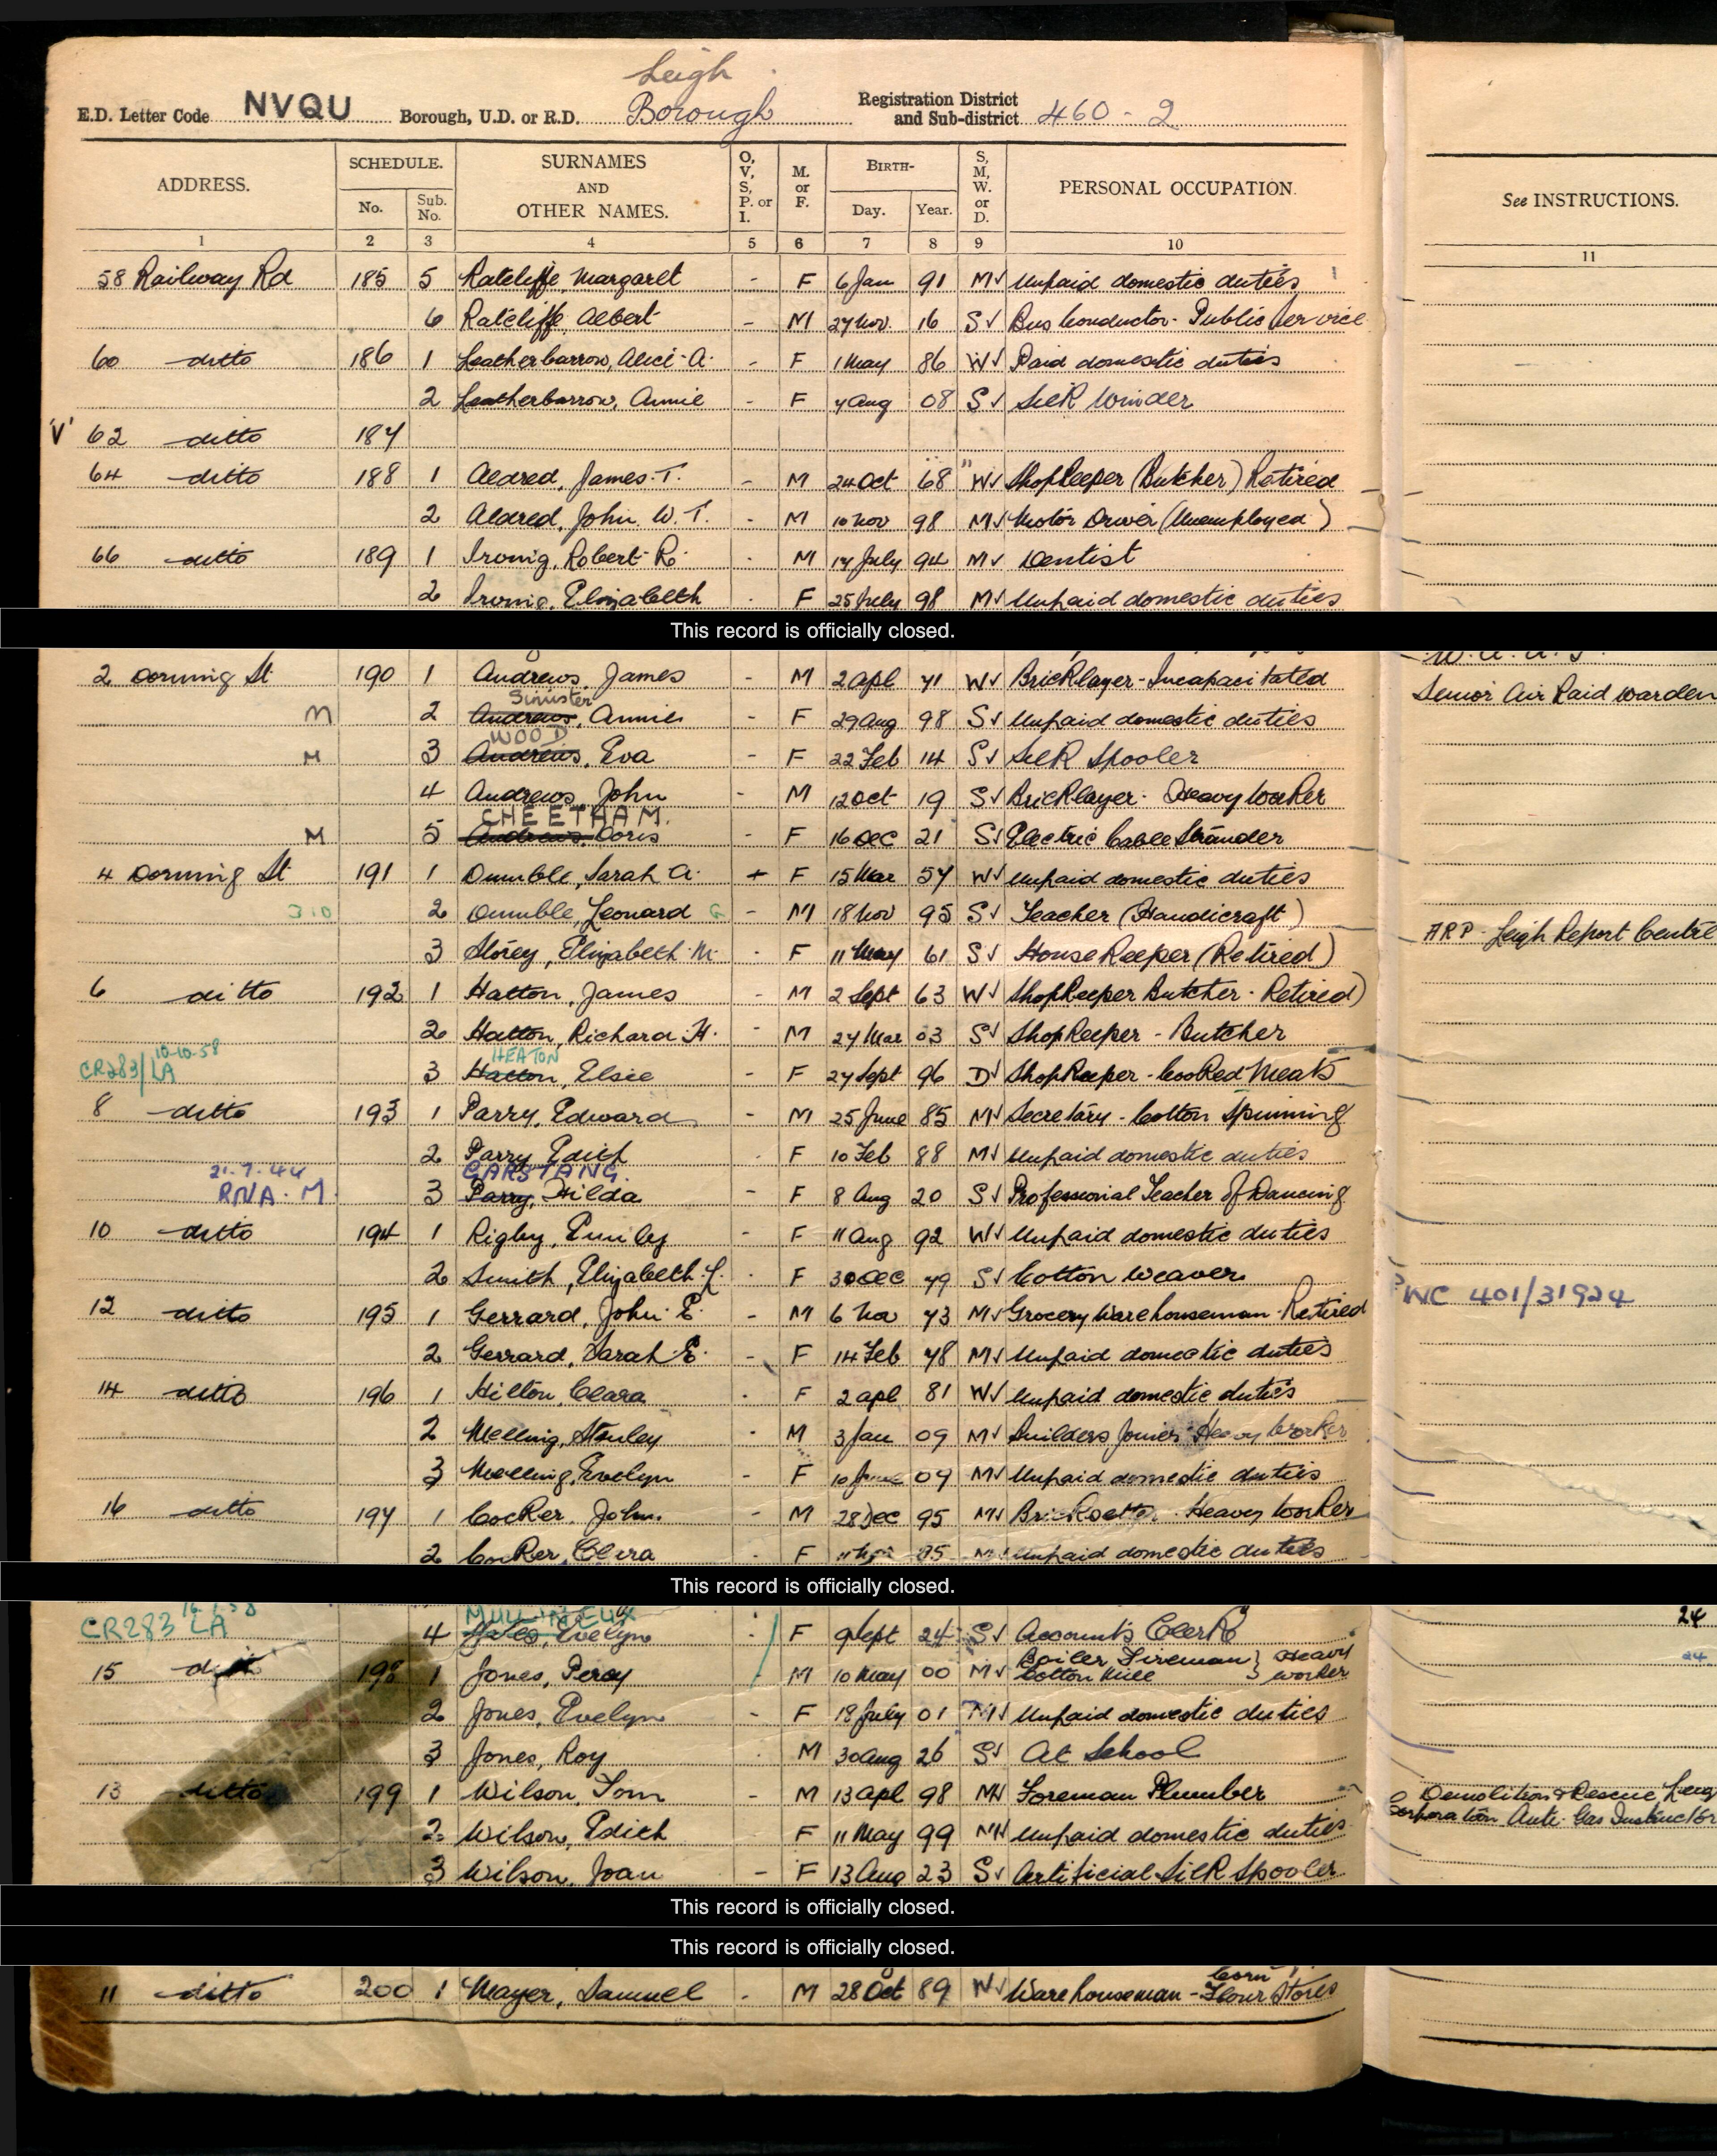 Leigh
E.D. Letter Code NVQU Borough, U.D. or R.D. Borough Registration District and Sub-district 460-2
ADDRESS. SCHEDULE. No. Sub. No. SURNAMES AND OTHER NAMES. O, V, S, P. or I. M. or F. BIRTH- Day. Year. S, M, W. or D. PERSONAL OCCUPATION. See INSTRUCTIONS.
1 2 3 4 5 6 7 8 9 10 11
58 Railway Rd 185 5 Ratcliffe, Margaret - F 6 Jan 91 M✓ Unpaid domestic duties
6 Ratcliffe, Albert - M 27 Nov. 16 S✓ Bus Conductor - Public Service
60 ditto 186 1 Leatherbarrow, Alice A. - F 1 May 86 W✓ Paid domestic duties
2 Leatherbarrow, Annie - F 7 Aug 08 S✓ Silk Winder
'V' 62 ditto 187
64 ditto 188 1 Aldred, James T. - M 24 Oct 68 W✓ Shopkeeper (Butcher) Retired
2 Aldred, John W. T. - M 10 Nov 98 M✓ Motor Driver (Unemployed)
66 ditto 189 1 Irving, Robert R. - M 17 July 94 M✓ Dentist
2 Irving, Elizabeth - F 25 July 98 M✓ Unpaid domestic duties
This record is officially closed.
2 Dorning St 190 1 Andrews, James - M 2 Apl 71 W✓ Bricklayer - Incapacitated
Senior Air Raid Warden
Sinister
M 2 Andrews, Annie - F 29 Aug 98 S✓ Unpaid domestic duties
WOOD
M 3 Andrews, Eva - F 22 Feb 14 S✓ Silk Spooler
4 Andrews, John - M 12 Oct 19 S✓ Bricklayer - Heavy Worker
CHEETHAM.
M 5 Andrews, Doris - F 16 Dec 21 S✓ Electric Cable Strander
4 Dorning St 191 1 Dumble, Sarah A. + F 15 Mar 57 W✓ Unpaid domestic duties
310 2 Dumble, Leonard G - M 18 Nov 95 S✓ Teacher (Handicraft)
ARP - Leigh Report Centre
3 Storey, Elizabeth M. - F 11 May 61 S✓ Housekeeper (Retired)
6 ditto 192 1 Hatton, James - M 2 Sept 63 W✓ Shopkeeper Butcher - Retired)
2 Hatton, Richard H. - M 27 Mar 03 S✓ Shopkeeper - Butcher
10-10-58 HEATON
CR283/LA 3 Hatton, Elsie - F 27 Sept 96 D✓ Shopkeeper - Cooked Meats
8 ditto 193 1 Parry, Edward - M 25 June 85 M✓ Secretary - Cotton Spinning
2 Parry, Edith F 10 Feb 88 M✓ Unpaid domestic duties
21.7.44 GARSTANG.
RN/A. M. 3 Parry, Hilda - F 8 Aug 20 S✓ Professional Teacher of Dancing
10 ditto 194 1 Rigby, Emily - F 11 Aug 92 W✓ Unpaid domestic duties
2 Smith, Elizabeth F 30 Dec 79 S✓ Cotton Weaver
WC 401/31924
12 ditto 195 1 Gerrard, John E. - M 6 Nov 73 M✓ Grocery Warehouseman - Retired
2 Gerrard, Sarah E. - F 14 Feb 78 M✓ Unpaid domestic duties
14 ditto 196 1 Hilton, Clara - F 2 Apl 81 W✓ Unpaid domestic duties
2 Melling, Stanley - M 3 Jan 09 M✓ Builders Joiner Heavy Worker
3 Melling, Evelyn - F 10 June 07 M✓ Unpaid domestic duties
16 ditto 197 1 Cocker, John. - M 28 Dec 95 M✓ Bricksetter Heavy Worker
2 Cocker, Clara - F 95 M✓ Unpaid domestic duties
This record is officially closed.
MULLINEUX
CR283 LA 4 Evelyn F 9 Sept 24 S✓ Accounts Clerk 24
15 ditto 198 1 Jones, Percy M 10 May 00 M✓ Boiler Fireman Cotton Mill } Heavy worker 24
2 Jones, Evelyn - F 18 July 01 M✓ Unpaid domestic duties
3 Jones, Roy M 30 Aug 26 S✓ At School
13 ditto 199 1 Wilson, Tom - M 13 Apl 98 M✓ Foreman Plumber Demolition & Rescue Leigh
Corporation Anti-Gas Instructor
2 Wilson, Edith F 11 May 99 M✓ Unpaid domestic duties
3 Wilson, Joan - F 13 Aug 23 S✓ Artificial Silk Spooler
This record is officially closed.
This record is officially closed.
Corn
11 ditto 200 1 Mayer, Samuel - M 28 Oct 89 Warehouseman - Flour Stores